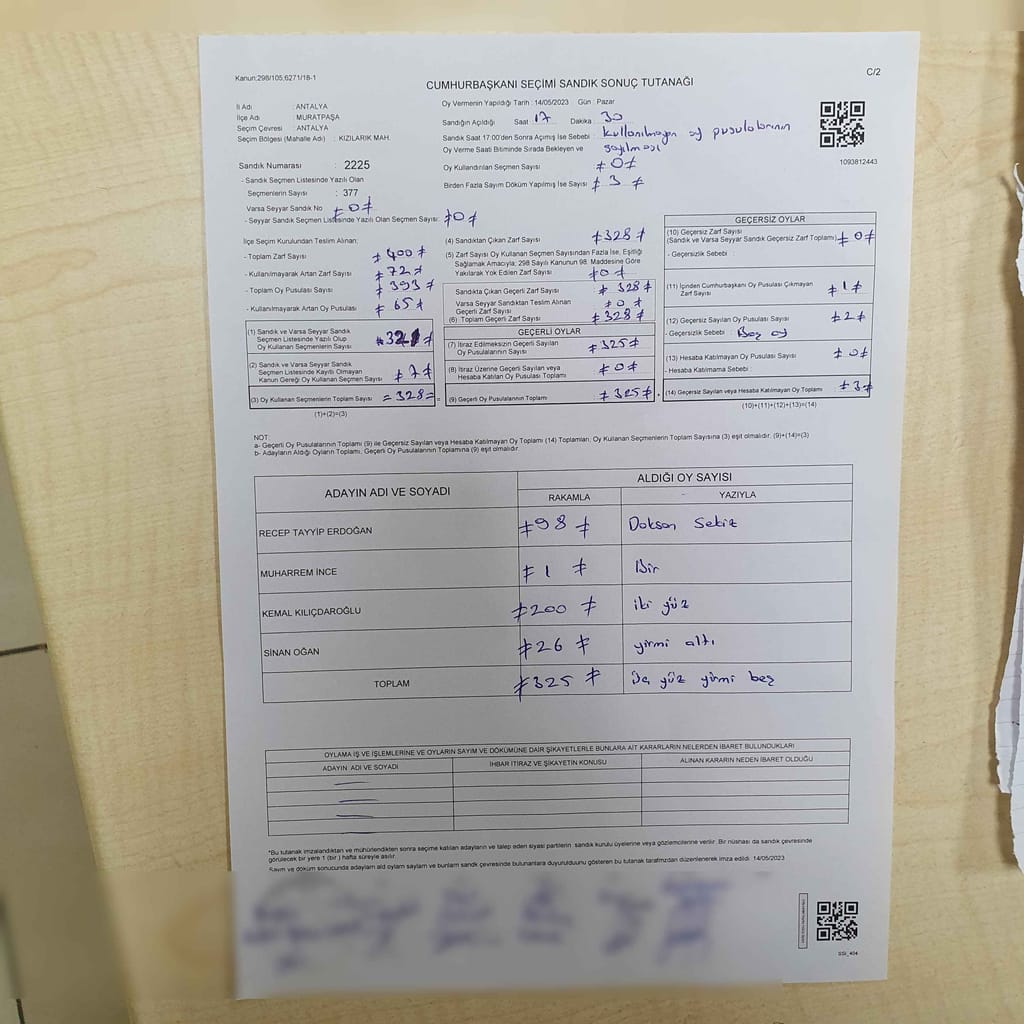 Kanun:298/105,6271/18-1
C/2
CUMHURBAŞKANI SEÇİMİ SANDIK SONUÇ TUTANAĞI
İl Adı : ANTALYA
İlçe Adı : MURATPAŞA
Seçim Çevresi : ANTALYA
Seçim Bölgesi (Mahalle Adı) : KIZILARIK MAH.
Oy Vermenin Yapıldığı Tarih : 14/05/2023 Gün : Pazar
Sandığın Açıldığı Saat 17 Dakika 30
Sandık Saat 17:00'den Sonra Açımış İse Sebebi : kullanılmayan oy pusulalarının sayılması
Oy Verme Saati Bitiminde Sırada Bekleyen ve
Oy Kullandırılan Seçmen Sayısı ≠ 0 ≠
Birden Fazla Sayım Döküm Yapılmış İse Sayısı : ≠ 3 ≠
1093812443
Sandık Numarası : 2225
- Sandık Seçmen Listesinde Yazılı Olan
Seçmenlerin Sayısı : 377
Varsa Seyyar Sandık No : ≠ 0 ≠
- Seyyar Sandık Seçmen Listesinde Yazılı Olan Seçmen Sayısı: ≠ 0 ≠
İlçe Seçim Kurulundan Teslim Alınan:
- Toplam Zarf Sayısı ≠ 400 ≠
- Kullanılmayarak Artan Zarf Sayısı ≠ 72 ≠
- Toplam Oy Pusulası Sayısı ≠ 393 ≠
- Kullanılmayarak Artan Oy Pusulası ≠ 65 ≠
(1) Sandık ve Varsa Seyyar Sandık
Seçmen Listesinde Yazılı Olup
Oy Kullanan Seçmenlerin Sayısı ≠ 321 ≠
(2) Sandık ve Varsa Seyyar Sandık
Seçmen Listesinde Kayıtlı Olmayan
Kanun Gereği Oy Kullanan Seçmen Sayısı ≠ 7 ≠
(3) Oy Kullanan Seçmenlerin Toplam Sayısı = 328 =
(1)+(2)=(3)
(4) Sandıktan Çıkan Zarf Sayısı ≠ 328 ≠
(5) Zarf Sayısı Oy Kullanan Seçmen Sayısından Fazla İse, Eşitliği
Sağlamak Amacıyla; 298 Sayılı Kanunun 98. Maddesine Göre
Yakılarak Yok Edilen Zarf Sayısı ≠ 0 ≠
Sandıkta Çıkan Geçerli Zarf Sayısı ≠ 328 ≠
Varsa Seyyar Sandıktan Teslim Alınan
Geçerli Zarf Sayısı ≠ 0 ≠
(6) Toplam Geçerli Zarf Sayısı ≠ 328 ≠
GEÇERLİ OYLAR
(7) İtiraz Edilmeksizin Geçerli Sayılan
Oy Pusulalarının Sayısı ≠ 325 ≠
(8) İtiraz Üzerine Geçerli Sayılan veya
Hesaba Katılan Oy Pusulası Toplamı ≠ 0 ≠
(9) Geçerli Oy Pusulalarının Toplamı ≠ 325 ≠
GEÇERSİZ OYLAR
(10) Geçersiz Zarf Sayısı
(Sandık ve Varsa Seyyar Sandık Geçersiz Zarf Toplamı) ≠ 0 ≠
- Geçersizlik Sebebi :
(11) İçinden Cumhurbaşkanı Oy Pusulası Çıkmayan
Zarf Sayısı ≠ 1 ≠
(12) Geçersiz Sayılan Oy Pusulası Sayısı ≠ 2 ≠
- Geçersizlik Sebebi : Boş oy
(13) Hesaba Katılmayan Oy Pusulası Sayısı ≠ 0 ≠
- Hesaba Katılmama Sebebi :
(14) Geçersiz Sayılan veya Hesaba Katılmayan Oy Toplamı ≠ 3 ≠
(10)+(11)+(12)+(13)=(14)
NOT:
a- Geçerli Oy Pusulalarının Toplamı (9) ile Geçersiz Sayılan veya Hesaba Katılmayan Oy Toplamı (14) Toplamları, Oy Kullanan Seçmenlerin Toplam Sayısına (3) eşit olmalıdır. (9)+(14)=(3)
b- Adayların Aldığı Oyların Toplamı, Geçerli Oy Pusulalarının Toplamına (9) eşit olmalıdır.
ADAYIN ADI VE SOYADI
ALDIĞI OY SAYISI
RAKAMLA YAZIYLA
RECEP TAYYİP ERDOĞAN ≠ 98 ≠ Doksan Sekiz
MUHARREM İNCE ≠ 1 ≠ Bir
KEMAL KILIÇDAROĞLU ≠ 200 ≠ iki yüz
SİNAN OĞAN ≠ 26 ≠ yirmi altı
TOPLAM ≠ 325 ≠ üç yüz yirmi beş
OYLAMA İŞ VE İŞLEMLERİNE VE OYLARIN SAYIM VE DÖKÜMÜNE DAİR ŞİKAYETLERLE BUNLARA AİT KARARLARIN NELERDEN İBARET BULUNDUKLARI
ADAYIN ADI VE SOYADI İHBAR İTİRAZ VE ŞİKAYETİN KONUSU ALINAN KARARIN NEDEN İBARET OLDUĞU
*Bu tutanak imzalandıktan ve mühürlendikten sonra seçime katılan adayların ve talep eden siyasi partilerin sandık kurulu üyelerine veya gözlemcilerine verilir. Bir nüshası da sandık çevresinde
görülecek bir yere 1 (bir ) hafta süreyle asılır.
Sayım ve döküm sonucunda adayların ald oyların saylam ve bunların sandık çevresinde bulunanlara duyurulduğunu gösteren bu tutanak tarafımızdan düzenlenerek imza edildi. 14/05/2023
SSİ_404